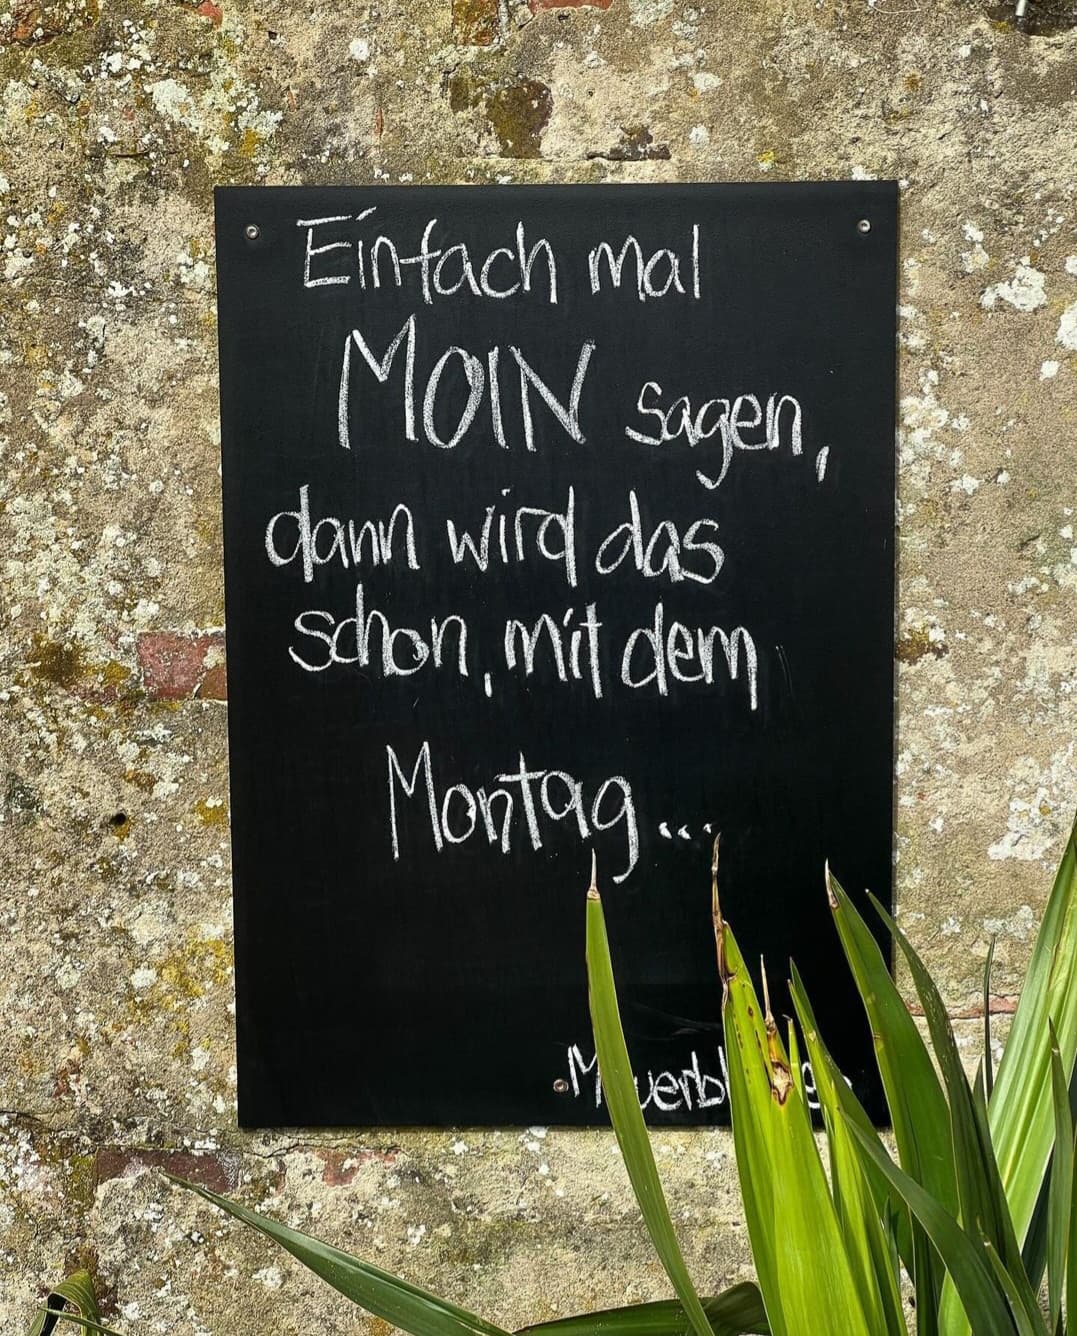 Einfach mal
MOIN sagen,
dann wird das
schon, mit dem
Montag...